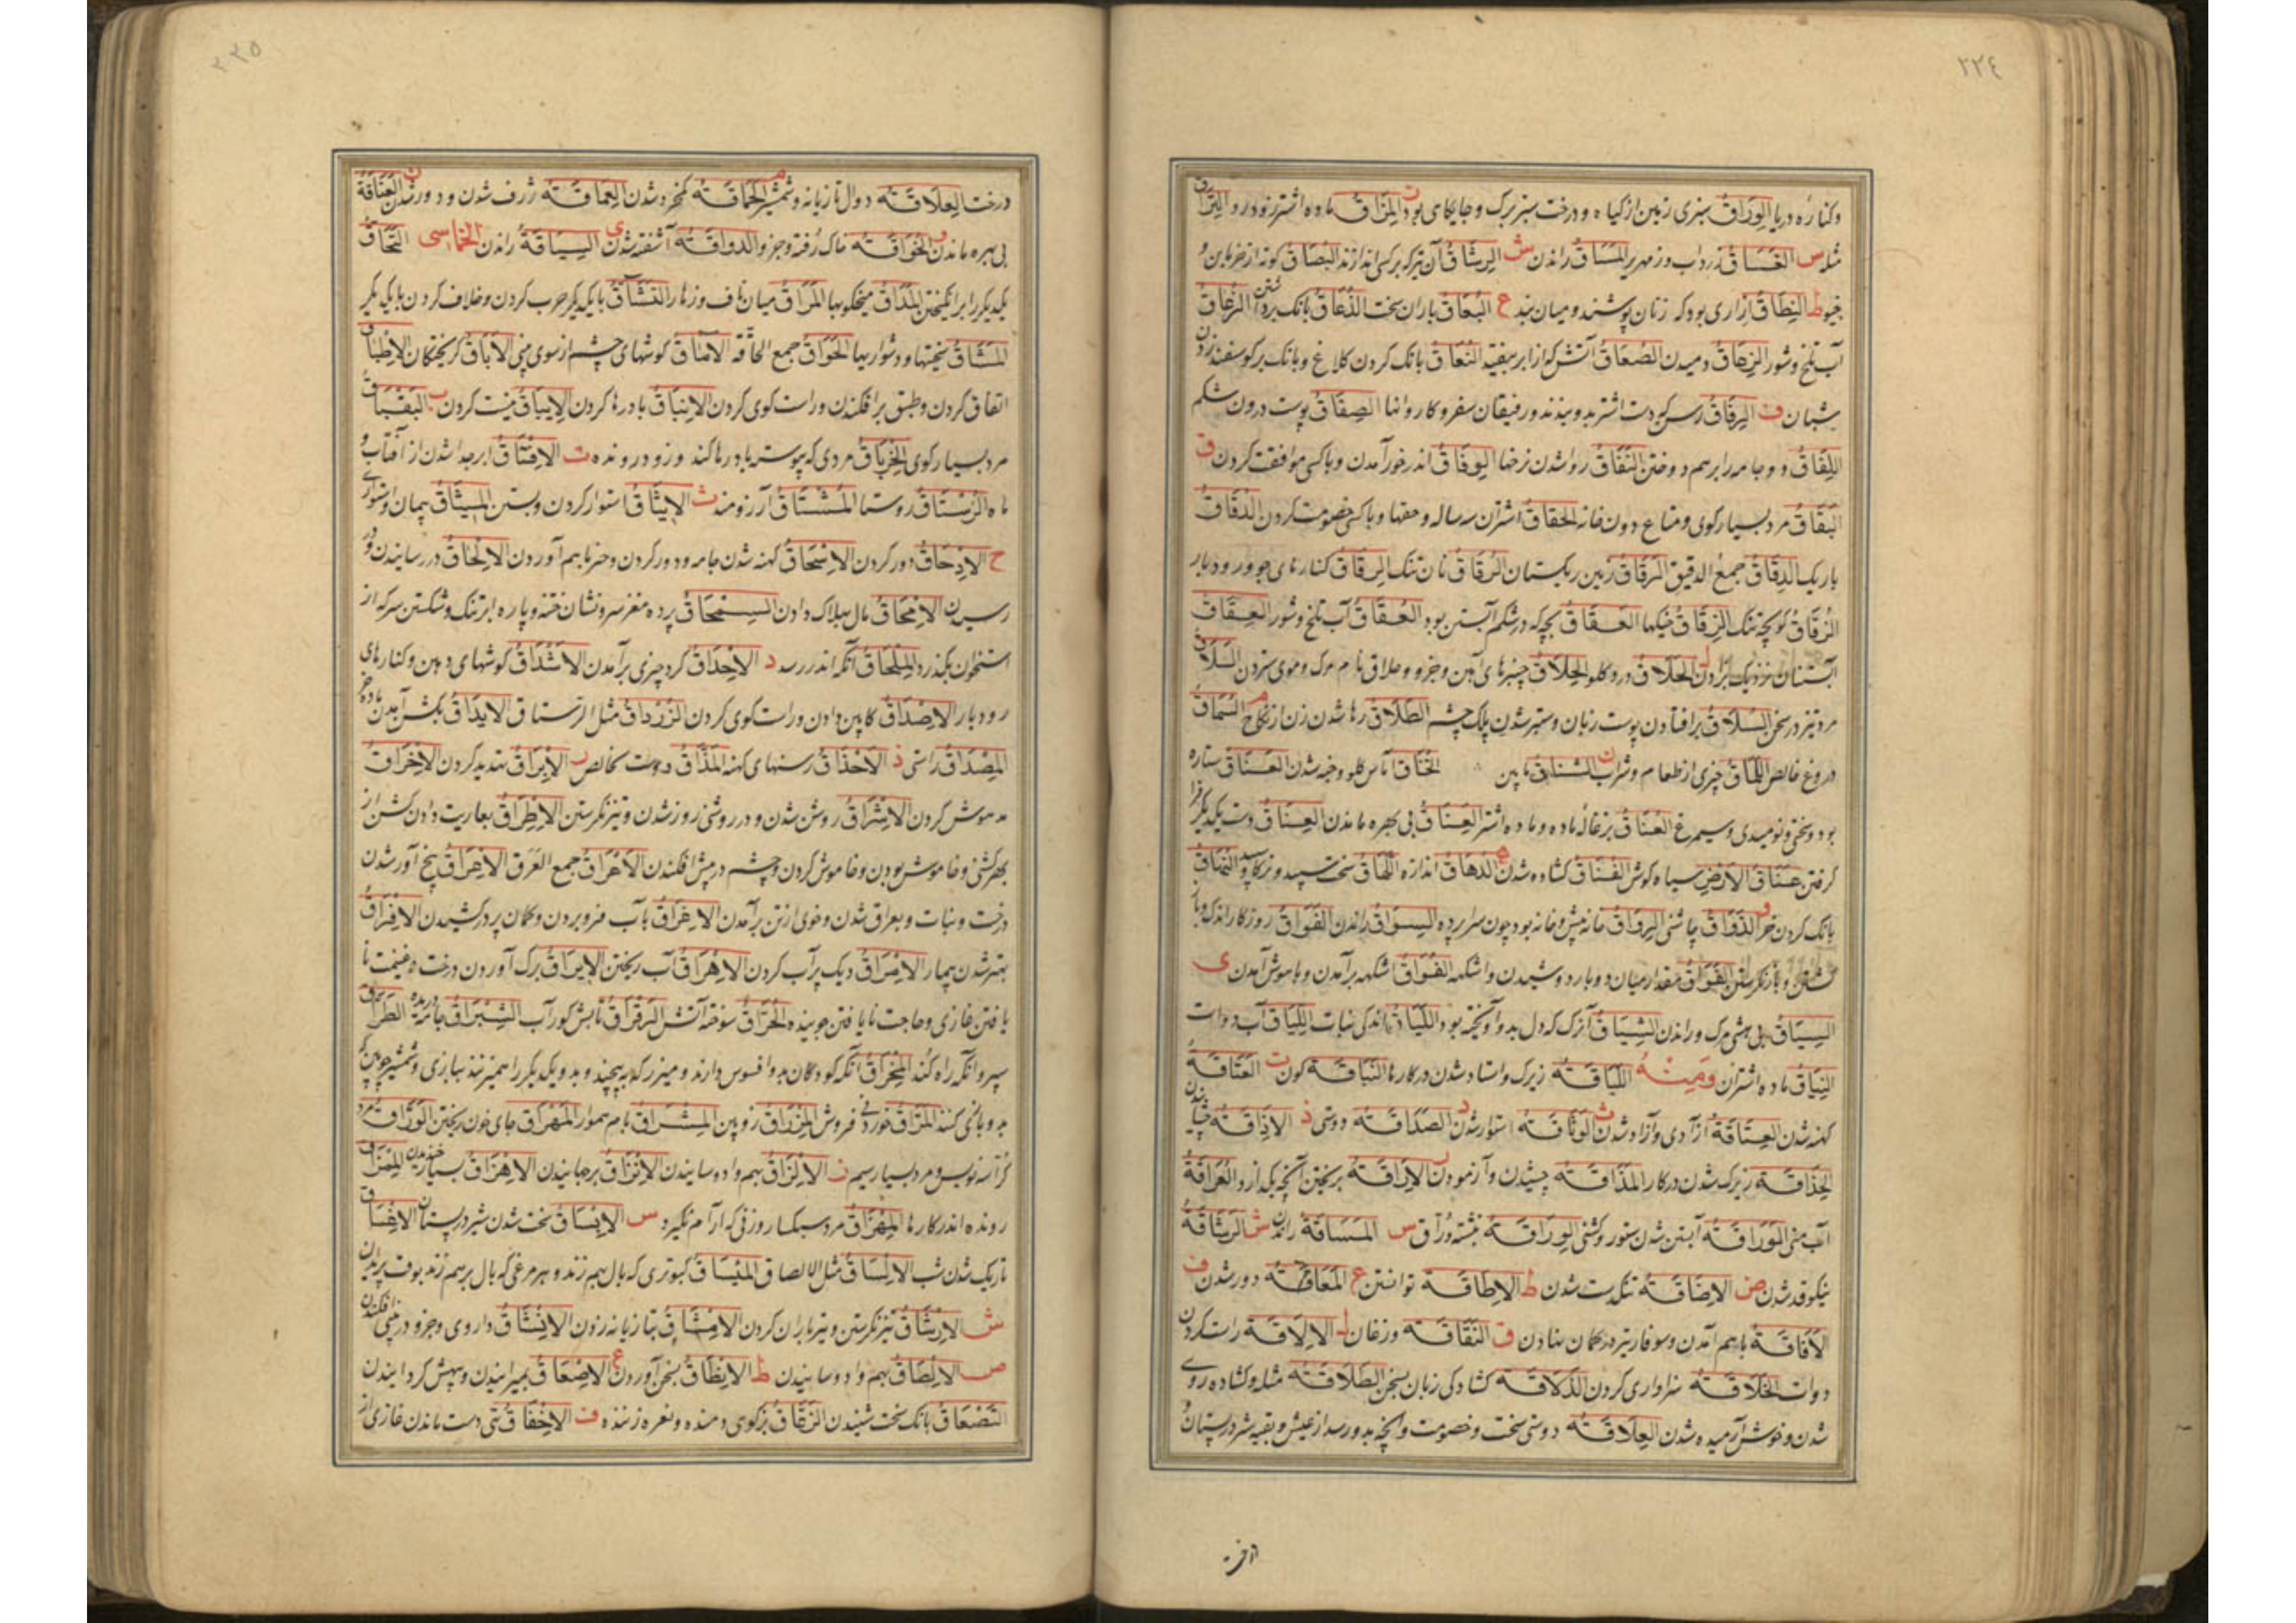 ٢٢٤
وکنارهٔ دریا الوراق سبزی زمین از کیاه و درخت سبز برک و جایکاهی بود المزاق ماده اشتر زود رو
مثله س الغساق زرداب و زمهریر المساق راندن ش الرشاق آن تیر که بر کسی اندازند البصاق
ط النطاق ازاری بود که زنان پوشند و میان بند ع البعاق باران سخت الذعاق بانک الزعاق
آب تلخ و شور الزهاق دمیدن الصعاق آتش که از ابر بیفتد النعاق بانک کردن کلاغ و بانک بر کوسفند زدن
شبان ف الرفاق رسن که دست اشتر بدو ببندند و رفیقان سفر و کاروانها الصفاق پوست درون شکم
اللفاق دو جامه را برهم دوختن النفاق روا شدن نرخها الوفاق اندر خور آمدن و با کسی موافقت کردن ق
البقاق مرد بسیار کوی و متاع دون خانه الحقاق اشتران سه ساله و حقها و با کسی خصومت کردن الدقاق
باریک الدقاق جمع الدقیق الرقاق زمین ریکستان الرقاق نان تنک الرقاق کنارهای جو و رودبار
الزقاق کوچه تنک الزقاق خیکها العقاق بچه که در شکم آبستن بود العقاق آب تلخ و شور العقاق
آبستنان نزدیک بزادن ل الحلاق درد کلو الحلاق چنبرهای آهن و جزو و حلاق نام مرک و موی ستردن السلاق
مرد تیز در سخن السلاق بر افتادن پوست زبان و ستبر شدن پلک چشم الطلاق رها شدن زن از نکاح م السماق
دروغ خالص اللماق چیزی از طعام و شراب ن الشناق مابین الخناق آماس کلو و خبه شدن العناق ستاره
بود و سختی و نومیدی و سیمرغ العناق بزغاله ماده و ماده اشتر العناق بی بهره ماندن العناق دست یکدیکر فرا
کرفتن عناق الارض سیاه کوش الفناق کشاده شدن ه الدهاق اندازه اللهاق سخت سپید و نرکاو النهاق
بانک کردن خر و الذواق چاشنی الرواق خانه پیش خانه بود چون سرا پرده السواق راندن الفواق روزکار اندک
و باز نکرستن الفواق مقدار میان دو بار دوشیدن و اشکهه الفواق اشکهه برآمدن و با هوش آمدن ی
السیاق بی هشی مرک و راندن الشیاق آنرک که دل بدو آویخته بود اللیاق ماندکی نبات اللیاق آب دوات
النیاق ماده اشتران ومنه اللباقة زیرک و استاد شدن در کارها النباقة کون ت العتاقة
کهنه شدن العتاقة آزادی و آزاد شدن ث الوثاقة استوار شدن د الصداقة دوستی ذ الاذاقة
الحذاقة زیرک شدن در کار المذاقة چشیدن و آزمودن ر الاراقة بریختن آنچه یک از رو العراقة
آب منی الوراقة آبستن شدن ستور و کشنی الوراقة نبشته وراق س المساقة راندن ش الرشاقة
نیکو قد شدن ض الاضاقة تنکدست شدن ط الاطاقة توانستن ع المعاقة دور شدن ف
الافاقة باهم آمدن و سوفار تیر در کمان نهادن ق النقاقة وزغان ل الالاقة راست کردن
دوات الخلاقة سزاواری کردن الذلاقة کشادکی زبان بسخن الطلاقة مثله و کشاده روی
شدن و خوش آرمیده شدن العلاقة دوستی سخت و خصومت و آنچه بدو رسد از عیش و بقیه شیر در پستان
درخت
٢٢٥
درخت العلاقة دوال تازیانه و شمشیر م الحماقة کم خرد شدن العماقة ژرف شدن و دور شدن ن العناقة
بی بهره ماندن و الخواقة خاک رفته و جزو الدواقة آشفته شدن ی السیاقة راندن الخماسی التحاق
یکدیکر را برانکیختن المداق میخکوبها المراق میان ناف و زهار التشاق بایکدیکر حرب کردن و خلاف کردن بایکدیکر
المشاق سختیها و دشواریها الحواق جمع الحاقة الاماق کوشهای چشم از سوی بینی الاباق کریختکان الاطباق
اتفاق کردن و طبق بر افکندن و راست کوی کردن الانباق باد رها کردن الایباق نیست کردن ب البقباق
مرد بسیار کوی الخرباق مردی که پیوسته باد رها کند و زود رونده ت الافتاق ابر جدا شدن از آفتاب و
ماه الرستاق روستا المشتاق آرزومند ث الایثاق استوار کردن و بستن المیثاق پیمان و استواری
ح الادحاق دور کردن الاسحاق کهنه شدن جامه و دور کردن و خرما بهم آوردن الالحاق در رسانیدن و در
رسیدن الامحاق مال هلاک دادن السمحاق پرده مغز سر و نشان ختنه و پاره ابر تنک و شکستن سر که از
استخوان بکذرد الملحاق آنکه اندر رسد د الاحداق کرد چیزی برآمدن الاشداق کوشهای دهن و کنارهای
رودبار الاصداق کابین دادن و راست کوی کردن الزرداق مثل الرستاق الایداق بکشن آمدن ماده خر
المصداق راستی ذ الاحذاق رسنهای کهنه المذاق دوست نخالص ر الابراق تهدید کردن الاخراق
مدهوش کردن الاشراق روشن شدن و در روشنی روز شدن و تیز نکرستن الاطراق بعاریت دادن کشن از
بهر کشنی و خاموش بودن و خاموش کردن و چشم در پیش افکندن الاعراق جمع العرق الاعراق بیخ آور شدن
درخت و نبات و بعراق شدن و خوی از تن برآمدن الاغراق بآب فرو بردن و کمان پر در کشیدن الافراق
بهتر شدن بیمار الامراق دیک پر آب کردن الاهراق آب ریختن الایراق برک آوردن درخت و غنیمت نا
یافتن غازی و حاجت نایافتن جوینده الحراق سوخته آتش الرقراق تابش کور آب الشبراق جامه دریده الطراق
سپر و آنکه راه کند المخراق آنکه کودکان بدو افسوس دارند و میزر که به پیچند و بدو یکدیکر را همیزنند ببازی و شمشیر چوبین که
بدو بازی کنند المراق خوردنی فروش المزراق زوپین المشراق بام هموار المهراق جای خون ریختن الوراق
کراسه نویس و مرد بسیار سیم ز الالزاق بهم وادوسانیدن الانزاق برجهانیدن الاهزاق بسیار خندیدن المزاق
رونده اندر کارها المهزاق مرد سبکسار و زنی که آرام نکیرد س الابساق سخت شدن شیر در پستان الاغساق
تاریک شدن شب الالساق مثل الالصاق المیساق کبوتری که بال بهم زند و هر مرغی که بال برهم زند بوقت پریدن
ش الارشاق تیز نکرستن و تیر باران کردن الامشاق بتازیانه زدن الانشاق داروی و جزو در بینی افکندن
ص الالصاق بهم وادوسانیدن ط الانطاق بسخن آوردن ع الاصعاق بمیرانیدن و بیهش کردانیدن
التصعاق بانک سخت شنیدن الزقاق بزکوی و دمنده و نعره زننده ف الاخفاق تهی دست ماندن غازی از